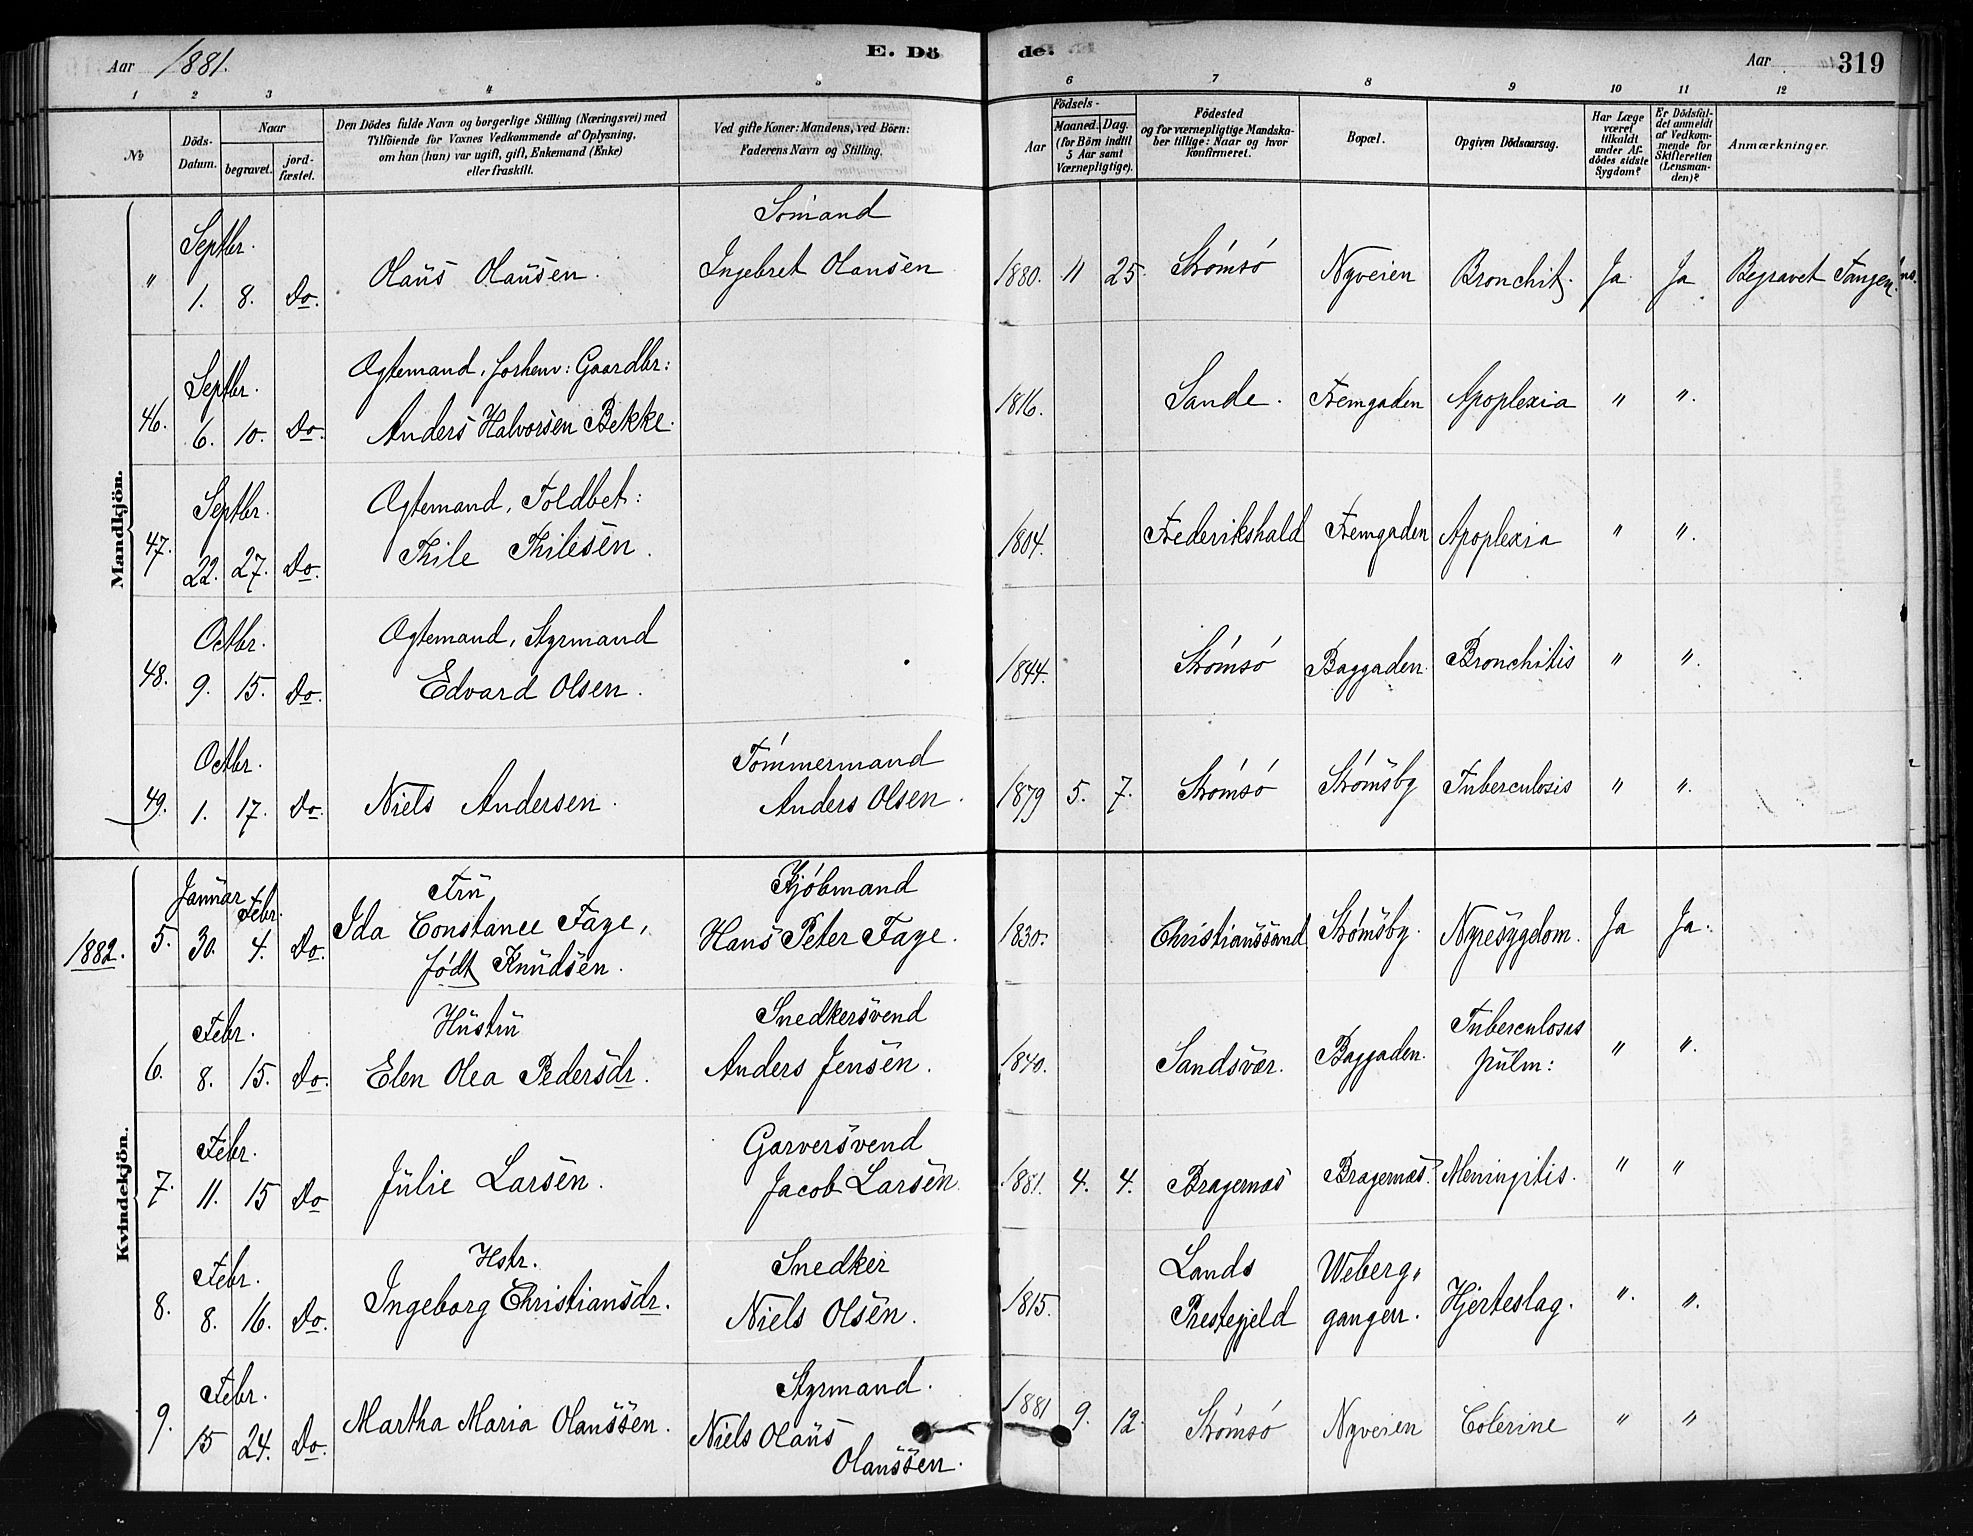 Aar 1881. E. Dö de. Aar 319
1 2 3 4 5 6 7 8 9 10 11 12
No
Döds-Datum.
Naar
begravet.
jord-fæstet.
Den Dödes fulde Navn og borgerlige Stilling (Næringsvei) med
Tilföiende for Voxnes Vedkommende af Oplysning,
om han (hun) var ugift, gift, Enkemand (Enke)
eller fraskilt.
Ved gifte Koner: Mandens, ved Börn:
Faderens Navn og Stilling.
Födsels-
Aar
Maaned. Dag.
(for Börn indtil
5 Aar samt
Værnepligtige).
Födested
og for værnepligtige Mandska-
ber tillige: Naar og hvor
konfirmeret.
Bopæl.
Opgiven Dödsaarsag.
Har Læge
været
tilkaldt
under Af-
dödes sidste
Sygdom?
Er Dödsfal-
det anmeldt
af Vedkom-
mende for
Skifteretten
(Lensman-
den)?
Anmærkninger.
Mandkjön.
Septbr. Sømand
" 1. 8. Do. Olaus Olausen. Ingebret Olausen 1880. 11 25. Strømsø Nyveien Bronchit. Ja Ja Begravet Tangen
Septbr. Ægtemand, forhenv: Gaardbr:
46. 6. 10. Do. Anders Halvorsen Bekke. 1816. Sande. Fremgaden Apoplexia " ".
Septbr. Ægtemand, Toldbet:
47. 22. 27. Do. Thile Thilesen. 1804. Frederikshald Fremgaden Apoplexia " ".
Octbr. Ægtemand, Styrmand
48. 9. 15. Do. Edvard Olsen. 1844. Strømsø Baggaden. Bronchitis " ".
Octbr. Tømmermand
49. 1. 17. Do. Niels Andersen. Anders Olsen. 1879 5. 7. Strømsø Strømsby Tuberculosis " ".
Kvindekjön.
1882.
Januar Febr. Fru Kjøbmand
5. 30. 4. Do. Ida Constance Faye, Hans Peter Faye. 1830. Christianssand Strømsby. Nyresygdom. Ja Ja.
født Knudsen.
Febr. Hustru Snedkersvend Tuberculosis
6. 8. 15. Do. Elen Olea Pedersdr. Anders Jensen. 1840. Sandsvær. Baggaden. pulm: " ".
Febr. Garversvend
7. 11. 15 Do Julie Larsen. Jacob Larsen. 1881. 4. 4. Bragernæs Bragernæs. Meningitis. " "
Febr. Hstr. Snedker Lands Weberg,
8. 8. 16. Do. Ingeborg Christiansdr. Niels Olsen. 1815. Prestegjeld gangen. Hjerteslag. ". ".
Febr. Styrmand.
9. 15 24. Do. Martha Maria Olaussen. Niels Olaus 1881 9. 12. Strømsø Nyveien Colerine " "
Olaussen.